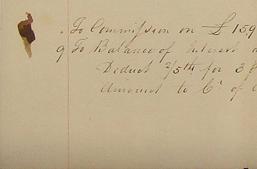 . To Commission on £ 159
9 To Balance of Interest a
Deduct 2/5th for 3
Amount to Cr of C